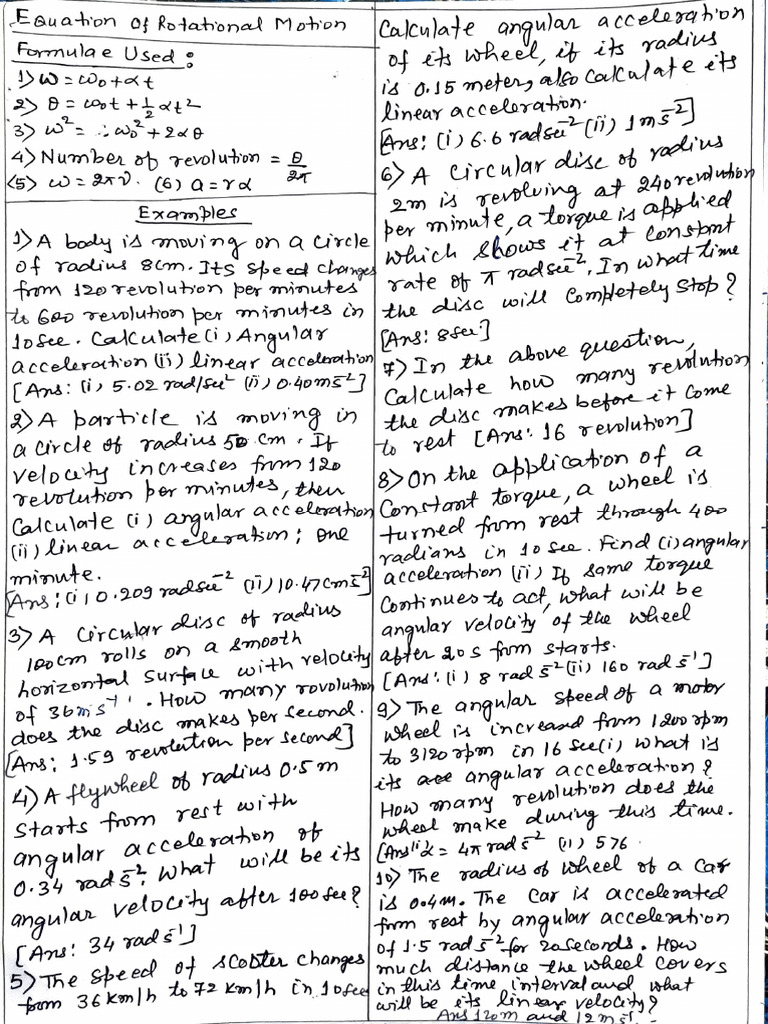 Equation Of Rotational Motion
Formulae Used:
1) ω = ω₀ + αt
2) θ = ω₀t + ½ αt²
3) ω² = ω₀² + 2αθ
4) Number of revolution = θ/2π
(5) ω = 2πν. (6) a = rα
Examples
1) A body is moving on a circle
of radius 8cm. Its speed changes
from 120 revolution per minutes
to 600 revolution per minutes in
10sec. Calculate (i) Angular
acceleration (ii) linear acceleration
[Ans: (i) 5.02 rad/sec² (ii) 0.40ms⁻²]
2) A particle is moving in
a circle of radius 50 cm. If
velocity increases from 120
revolution per minutes, then
Calculate (i) angular acceleration
(ii) linear acceleration; one
minute.
[Ans: (i) 0.209 radsec⁻² (ii) 10.47cms⁻²]
3) A Circular disc of radius
100cm rolls on a smooth
horizontal surface with velocity
of 36ms⁻¹. How many rovolution
does the disc makes per second.
[Ans: 1.59 revolution per second]
4) A flywheel of radius 0.5m
starts from rest with
angular acceleration of
0.34 rads⁻². What will be its
angular velocity after 100sec?
[Ans: 34 rads⁻¹]
5) The speed of scooter changes
from 36km/h to 72km/h in 10sec
Calculate angular acceleration
of its wheel, if its radius
is 0.15 meter, also calculate its
linear acceleration.
[Ans: (i) 6.6 radsec⁻² (ii) 1ms⁻²]
6) A circular disc of radius
2m is revolving at 240 revolution
per minute, a torque is applied
which shows it at constant
rate of π radsec⁻². In what time
the disc will completely stop?
[Ans: 8sec]
7) In the above question,
Calculate how many revolution
the disc makes before it come
to rest [Ans: 16 revolution]
8) On the application of a
Constant torque, a wheel is
turned from rest through 400
radians in 10 sec. Find (i) angular
acceleration (ii) If same torque
Continues to act, what will be
angular velocity of the wheel
after 20s from starts.
[Ans: (i) 8 rads⁻² (ii) 160 rads⁻¹]
9) The angular speed of a motor
wheel is increased from 1200rpm
to 3120rpm in 16 sec (i) what is
its angular acceleration?
How many revolution does the
wheel make during this time.
[Ans (i) α = 4π rads⁻² (i) 576.
10) The radius of wheel of a car
is 0.4m. The car is accelerated
from rest by angular acceleration
of 1.5 rads⁻² for 20seconds. How
much distance the wheel covers
in this time interval and what
will be its linear velocity?
Ans 120m and 12ms⁻¹.